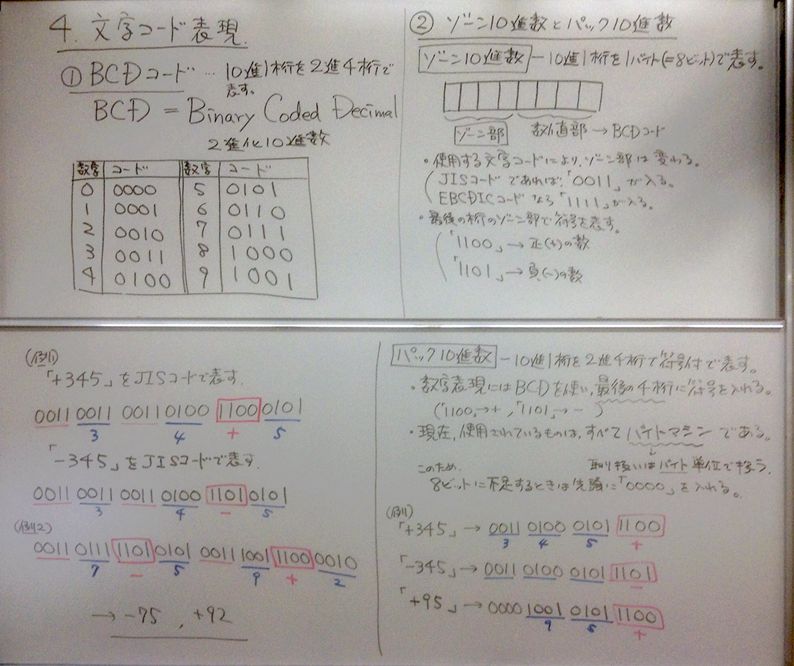 4. 文字コード表現.
① BCDコード … 10進1桁を2進4桁で
表す。
BCD = Binary Coded Decimal
2進化10進数
数字 コード 数字 コード
0 0000 5 0101
1 0001 6 0110
2 0010 7 0111
3 0011 8 1000
4 0100 9 1001
② ゾーン10進数とパック10進数
ゾーン10進数 ー 10進1桁を1バイト(=8ビット)で表す。
ゾーン部 数値部 → BCDコード
・使用する文字コードにより、ゾーン部は変わる。
JISコードであれば、「0011」が入る。
EBCDICコードなら「1111」が入る。
・最後の桁のゾーン部で符号を表す。
「1100」→ 正(+)の数
「1101」→ 負(-)の数
(例1)
「+345」をJISコードで表す.
0011 0011 0011 0100 1100 0101
3 4 + 5
「-345」をJISコードで表す.
0011 0011 0011 0100 1101 0101
3 4 - 5
(例2)
0011 0111 1101 0101 0011 1001 1100 0010
7 - 5 9 + 2
→ -75 , +92
パック10進数 ー 10進1桁を2進4桁で符号付で表す。
・数字表現にはBCDを使い、最後の4桁に符号を入れる。
(「1100」→+ , 「1101」→- )
・現在、使用されているものは、すべてバイトマシンである。
↓
取り扱いはバイト単位で扱う.
このため.
8ビットに不足するときは先頭に「0000」を入れる。
(例1)
「+345」→ 0011 0100 0101 1100
3 4 5 +
「-345」→ 0011 0100 0101 1101
-
「+95」→ 0000 1001 0101 1100
9 5 +